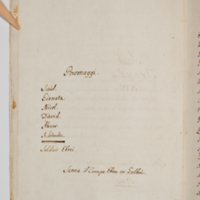 Personaggi.
Saul
Gionata
Micol
David
Abner
Soldati Ebrei
Scena il Campo Ebreo in Gelboè